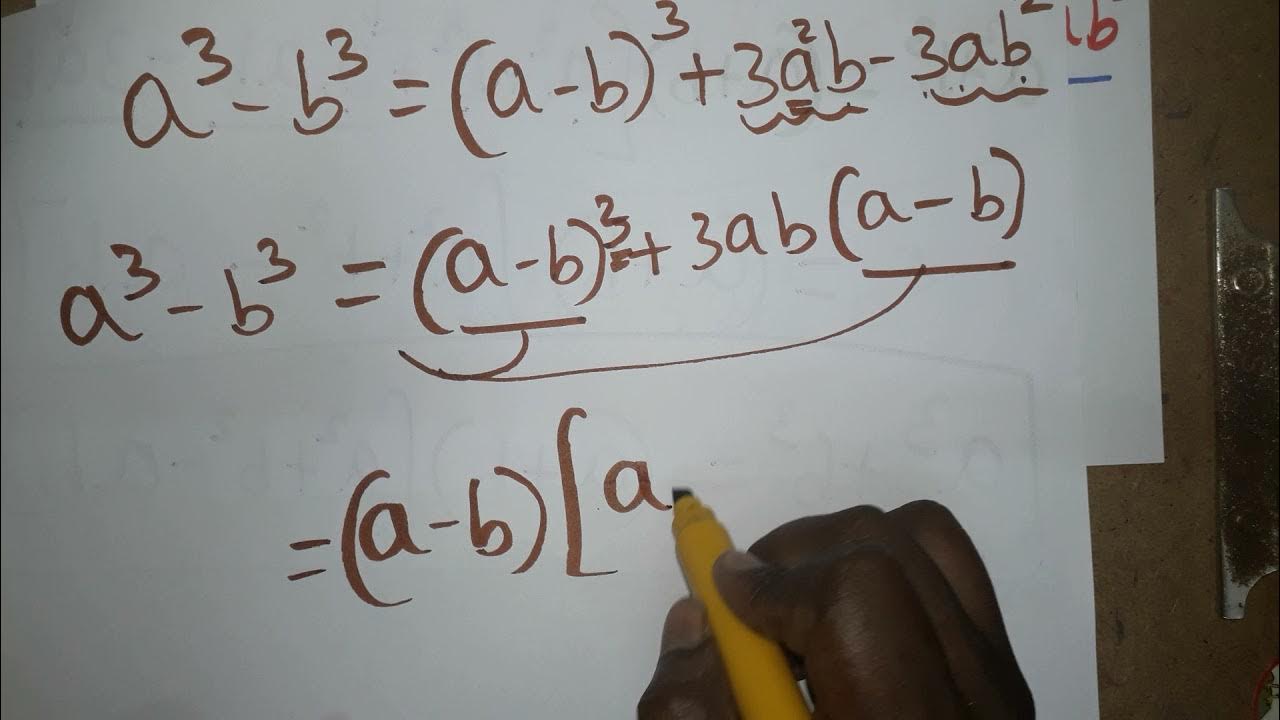 a³ - b³ = (a - b)³ + 3a²b - 3ab² b
a³ - b³ = (a - b)³ + 3ab(a - b)
= (a - b) [a